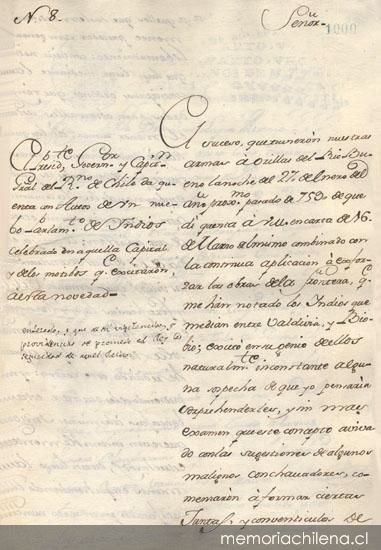 N. 8.
Señor
1000
El Presid.te Govern.or y Capitn
Gral del R.no de Chile da
quenta con Autos de un nue
bo Parlam.to de Indios
celebrado en aquella Capital
y de los motibos q. executaron
a esta novedad
enterado, y que de su vigilancia, y
providencias se promete el Rey la
El suceso, que tuvieron nuestras
armas á orillas del Rio Bu
eno la noche del 27 de Enero del
año proxmo pasado de 759 de que
di quenta á V.M. en carta de 16
de Marzo del mismo combinado con
la continua aplicacion á esfor
zar las obras de la frontera, q.
me hán notado los Indios que
median entre Valdivia, y Bio
bio; excitó en su genio de ellos
naturalm.te inconstante algu
na sospecha de que yo pensaria
sorprehenderles, y sin mas
examen que este concepto aviva
do con las sugestiones de algunos
malignos conchavadores, co
menzaron á formar ciertas
Juntas, y conventiculos de
memoriachilena.cl